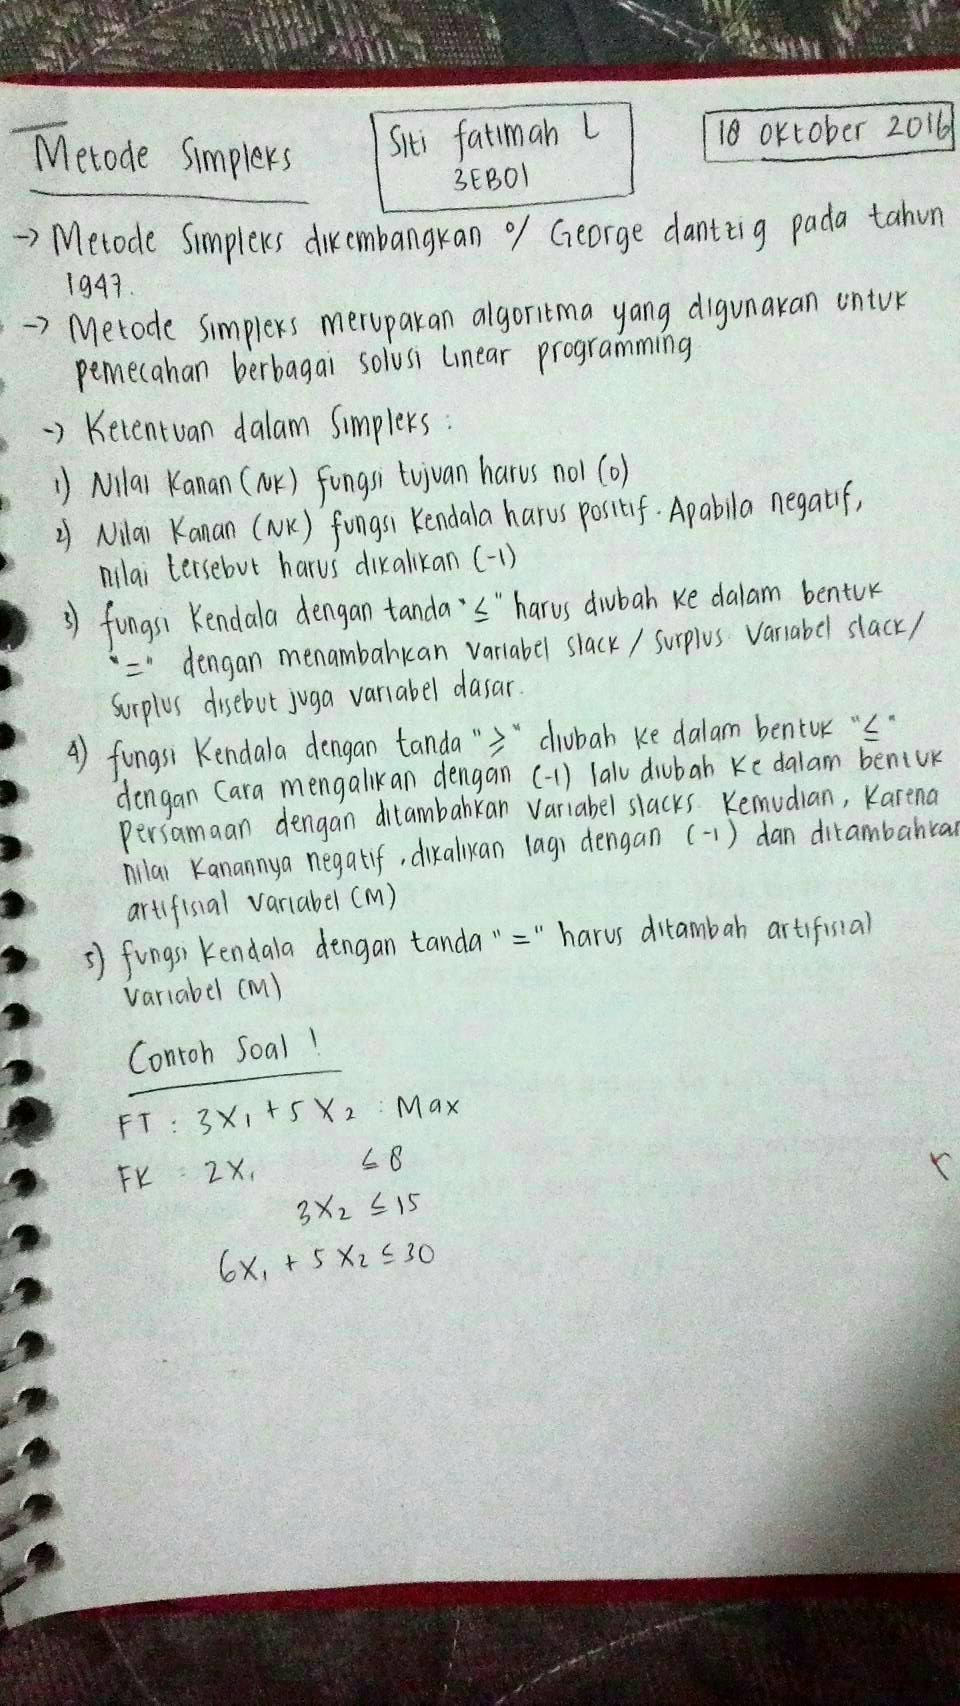 Metode Simpleks
Siti fatimah L
3EB01
18 Oktober 2016
-> Metode Simpleks dikembangkan o/ George dantzig pada tahun
1947.
-> Metode Simpleks merupakan algoritma yang digunakan untuk
pemecahan berbagai solusi Linear programming
-> Ketentuan dalam Simpleks :
1) Nilai Kanan (NK) fungsi tujuan harus nol (0)
2) Nilai Kanan (NK) fungsi Kendala harus positif. Apabila negatif,
nilai tersebut harus dikalikan (-1)
3) fungsi Kendala dengan tanda "≤" harus diubah ke dalam bentuk
"=" dengan menambahkan variabel slack / surplus. Variabel slack /
Surplus disebut juga variabel dasar.
4) fungsi Kendala dengan tanda "≥" diubah ke dalam bentuk "≤"
dengan Cara mengalikan dengan (-1) lalu diubah ke dalam bentuk
persamaan dengan ditambahkan Variabel slacks. Kemudian, Karena
nilai Kanannya negatif, dikalikan lagi dengan (-1) dan ditambahkan
artifisial variabel (M)
5) fungsi Kendala dengan tanda "=" harus ditambah artifisial
variabel (M)
Contoh Soal !
FT : 3X₁ + 5X₂ : Max
FK : 2X₁ ≤ 8
3X₂ ≤ 15
6X₁ + 5X₂ ≤ 30